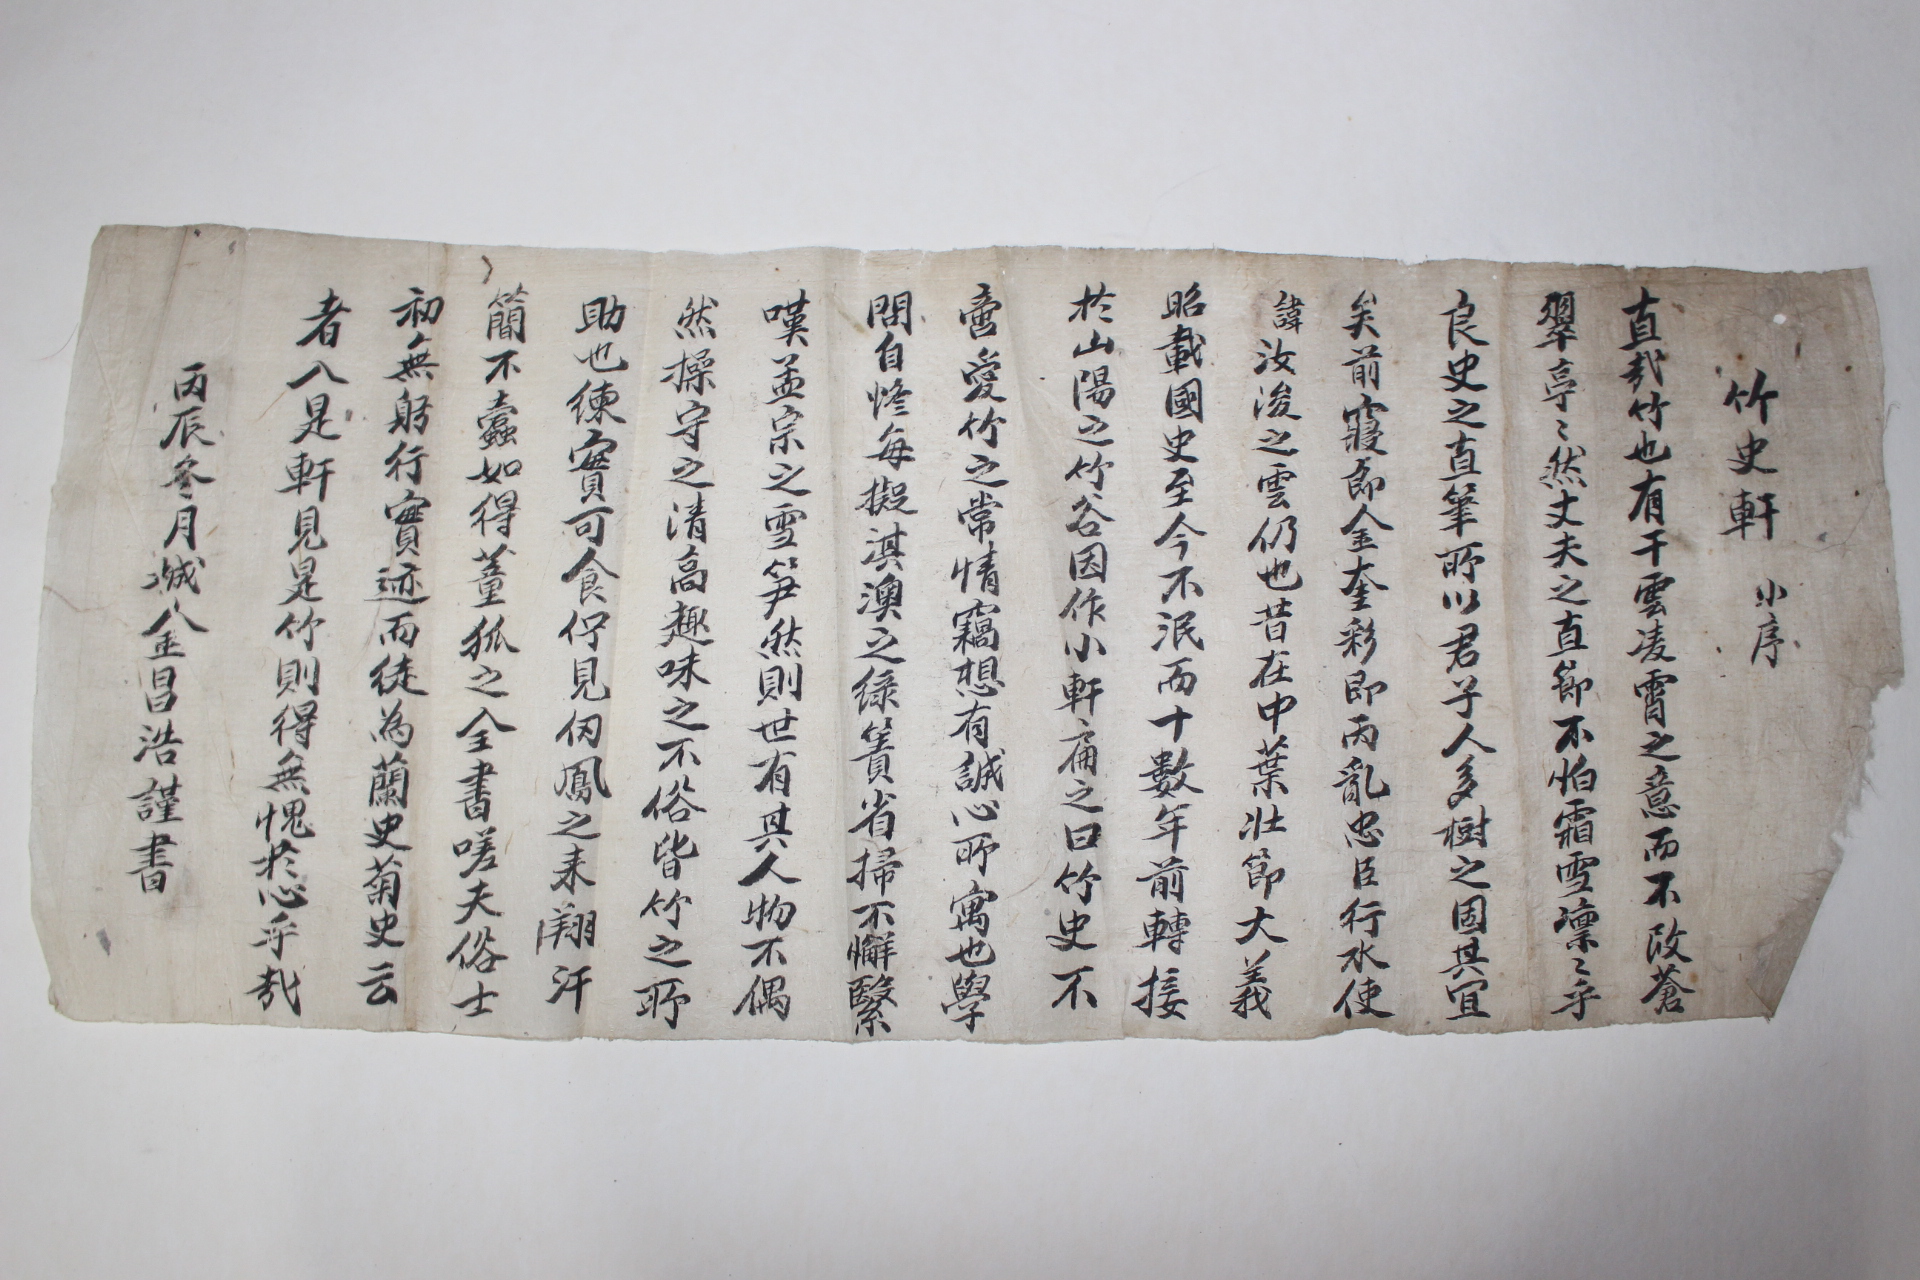 竹史軒 小序
直哉竹也有干雲凌霄之意而不改蒼
翠亭〻然丈夫之直節不怕霜雪凛〻乎
良史之直筆所以君子人多樹之固其宜
矣前寢郎金奎彩即丙亂忠臣行水使
諱汝浚之雲仍也昔在中葉壯節大義
昭載國史至今不泯而十數年前轉接
於山陽之竹谷因作小軒扁之曰竹史不
啻愛竹之常情竊想有誠心所寓也學
問自修每擬淇澳之綠簀省掃不懈繄
嘆孟宗之雪笋然則世有其人物不偶
然操守之清高趣味之不俗皆竹之所
助也練實可食佇見伤鳳之来翔汗
簡不蠹如得董狐之全書嗟夫俗士
初無躬行實迹而徒為蘭史菊史云
者入是軒見是竹則得無愧於心乎哉
丙辰冬月 金昌浩謹書